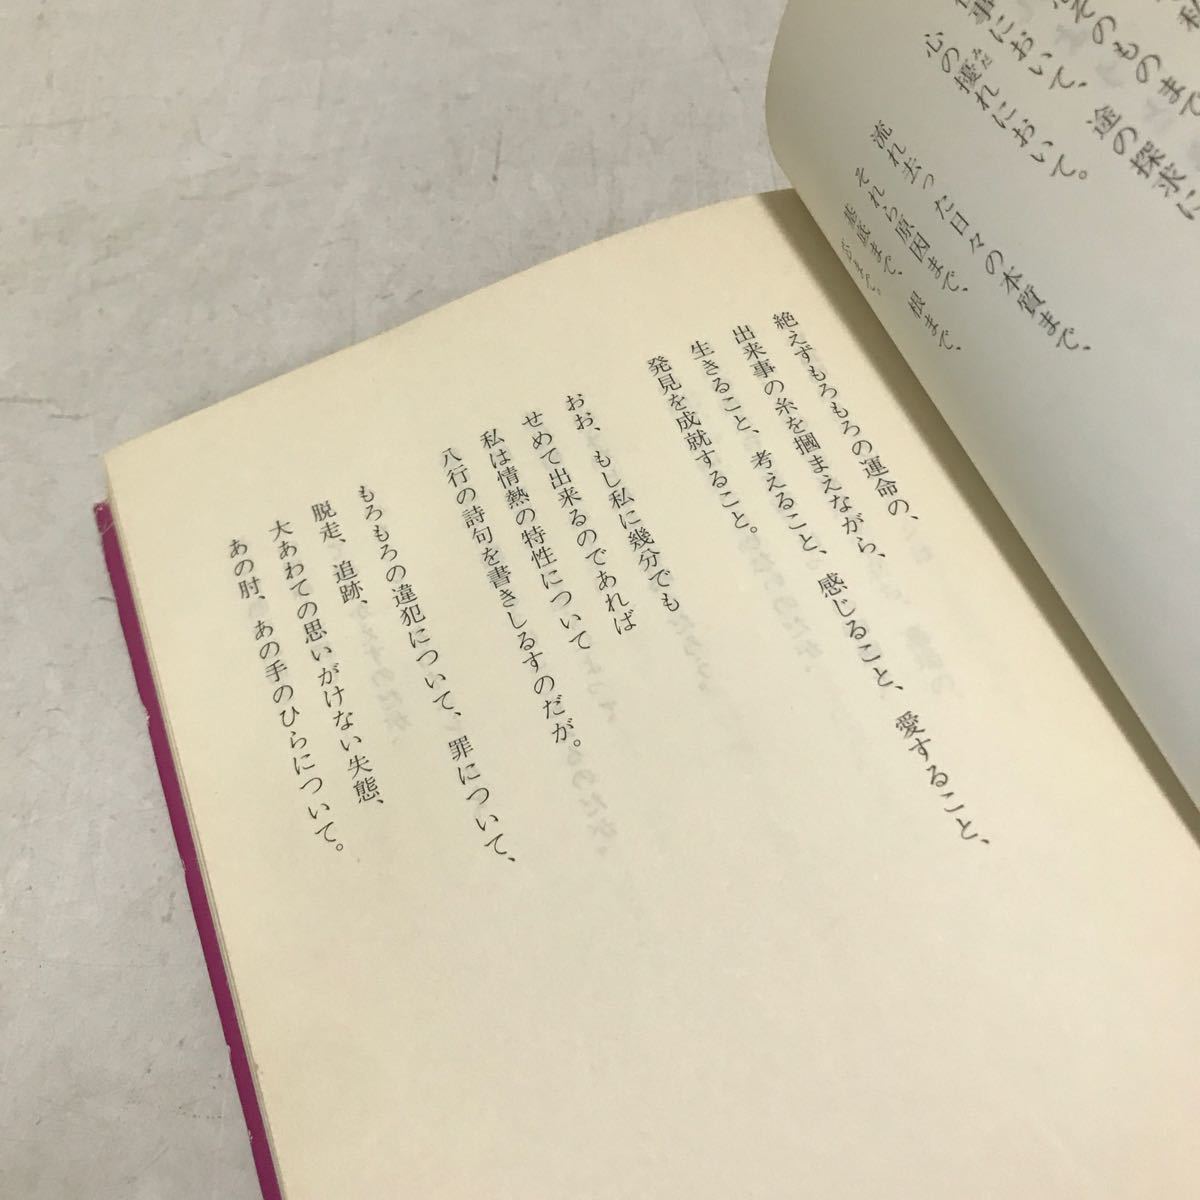 そのものまで
途の探求に
事において、
心の擾れにおいて。
みだ
流れ去った日々の本質まで、
それら原因まで、
基底まで、根まで、
絶えずもろもろの運命の、
出来事の糸を摑まえながら、
生きること、考えること、感じること、愛すること、
発見を成就すること。
おお、もし私に幾分でも
せめて出来るのであれば
私は情熱の特性について
八行の詩句を書きしるすのだが。
もろもろの違犯について、罪について、
脱走、追跡、
大あわての思いがけない失態、
あの肘、あの手のひらについて。